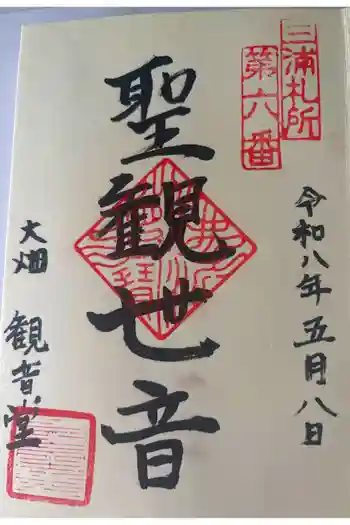 三浦札所
第六番
令和八年五月八日
聖観世音
大畑
観音堂